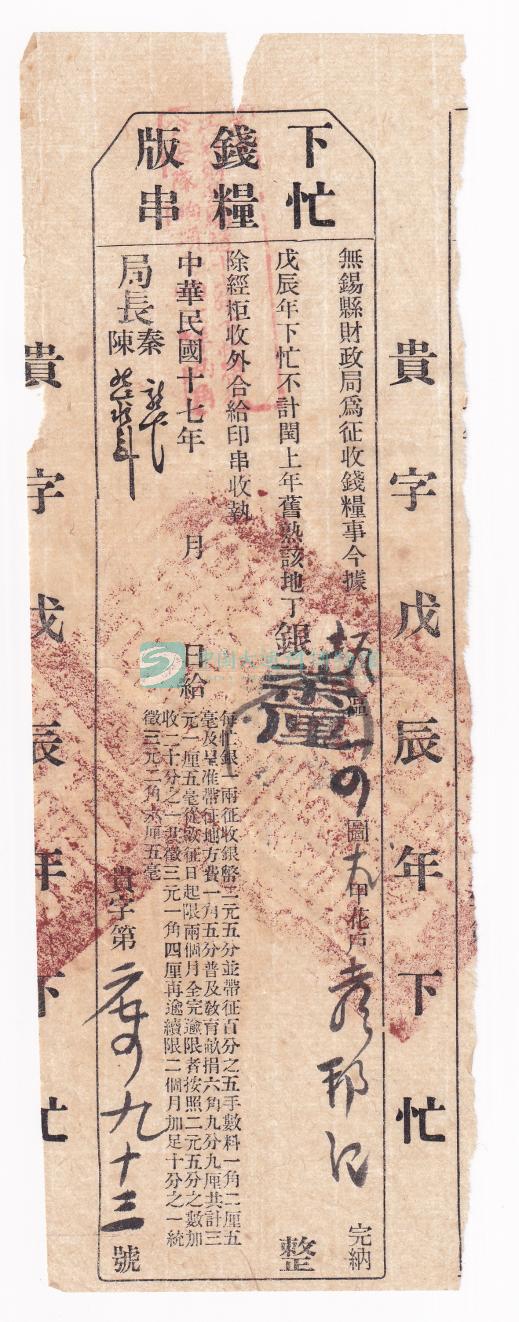 下忙
錢糧
版串
無錫縣財政局爲征收錢糧事今據
區
圖
甲花戶
完納
戊辰年下忙不計閏上年舊熟該地丁銀
整
除經柜收外合給印串收執
每忙銀一兩征收銀幣二元五分並帶征百分之五手數料一角二厘五
毫及呈准帶征地方費一角五分普及敎育畝捐六角九分九厘共計三
元一厘五毫從啟征日起限兩個月全完逾限者按照二元五分之數加
收二十分之一共徵三元一角四厘再逾續限二個月加足十分之一統
徵三元二角六厘五毫
中華民國十七年 月 日給
貴字第
九十三號
局長秦
陳
貴字戊辰年下忙
貴字戊辰年下忙